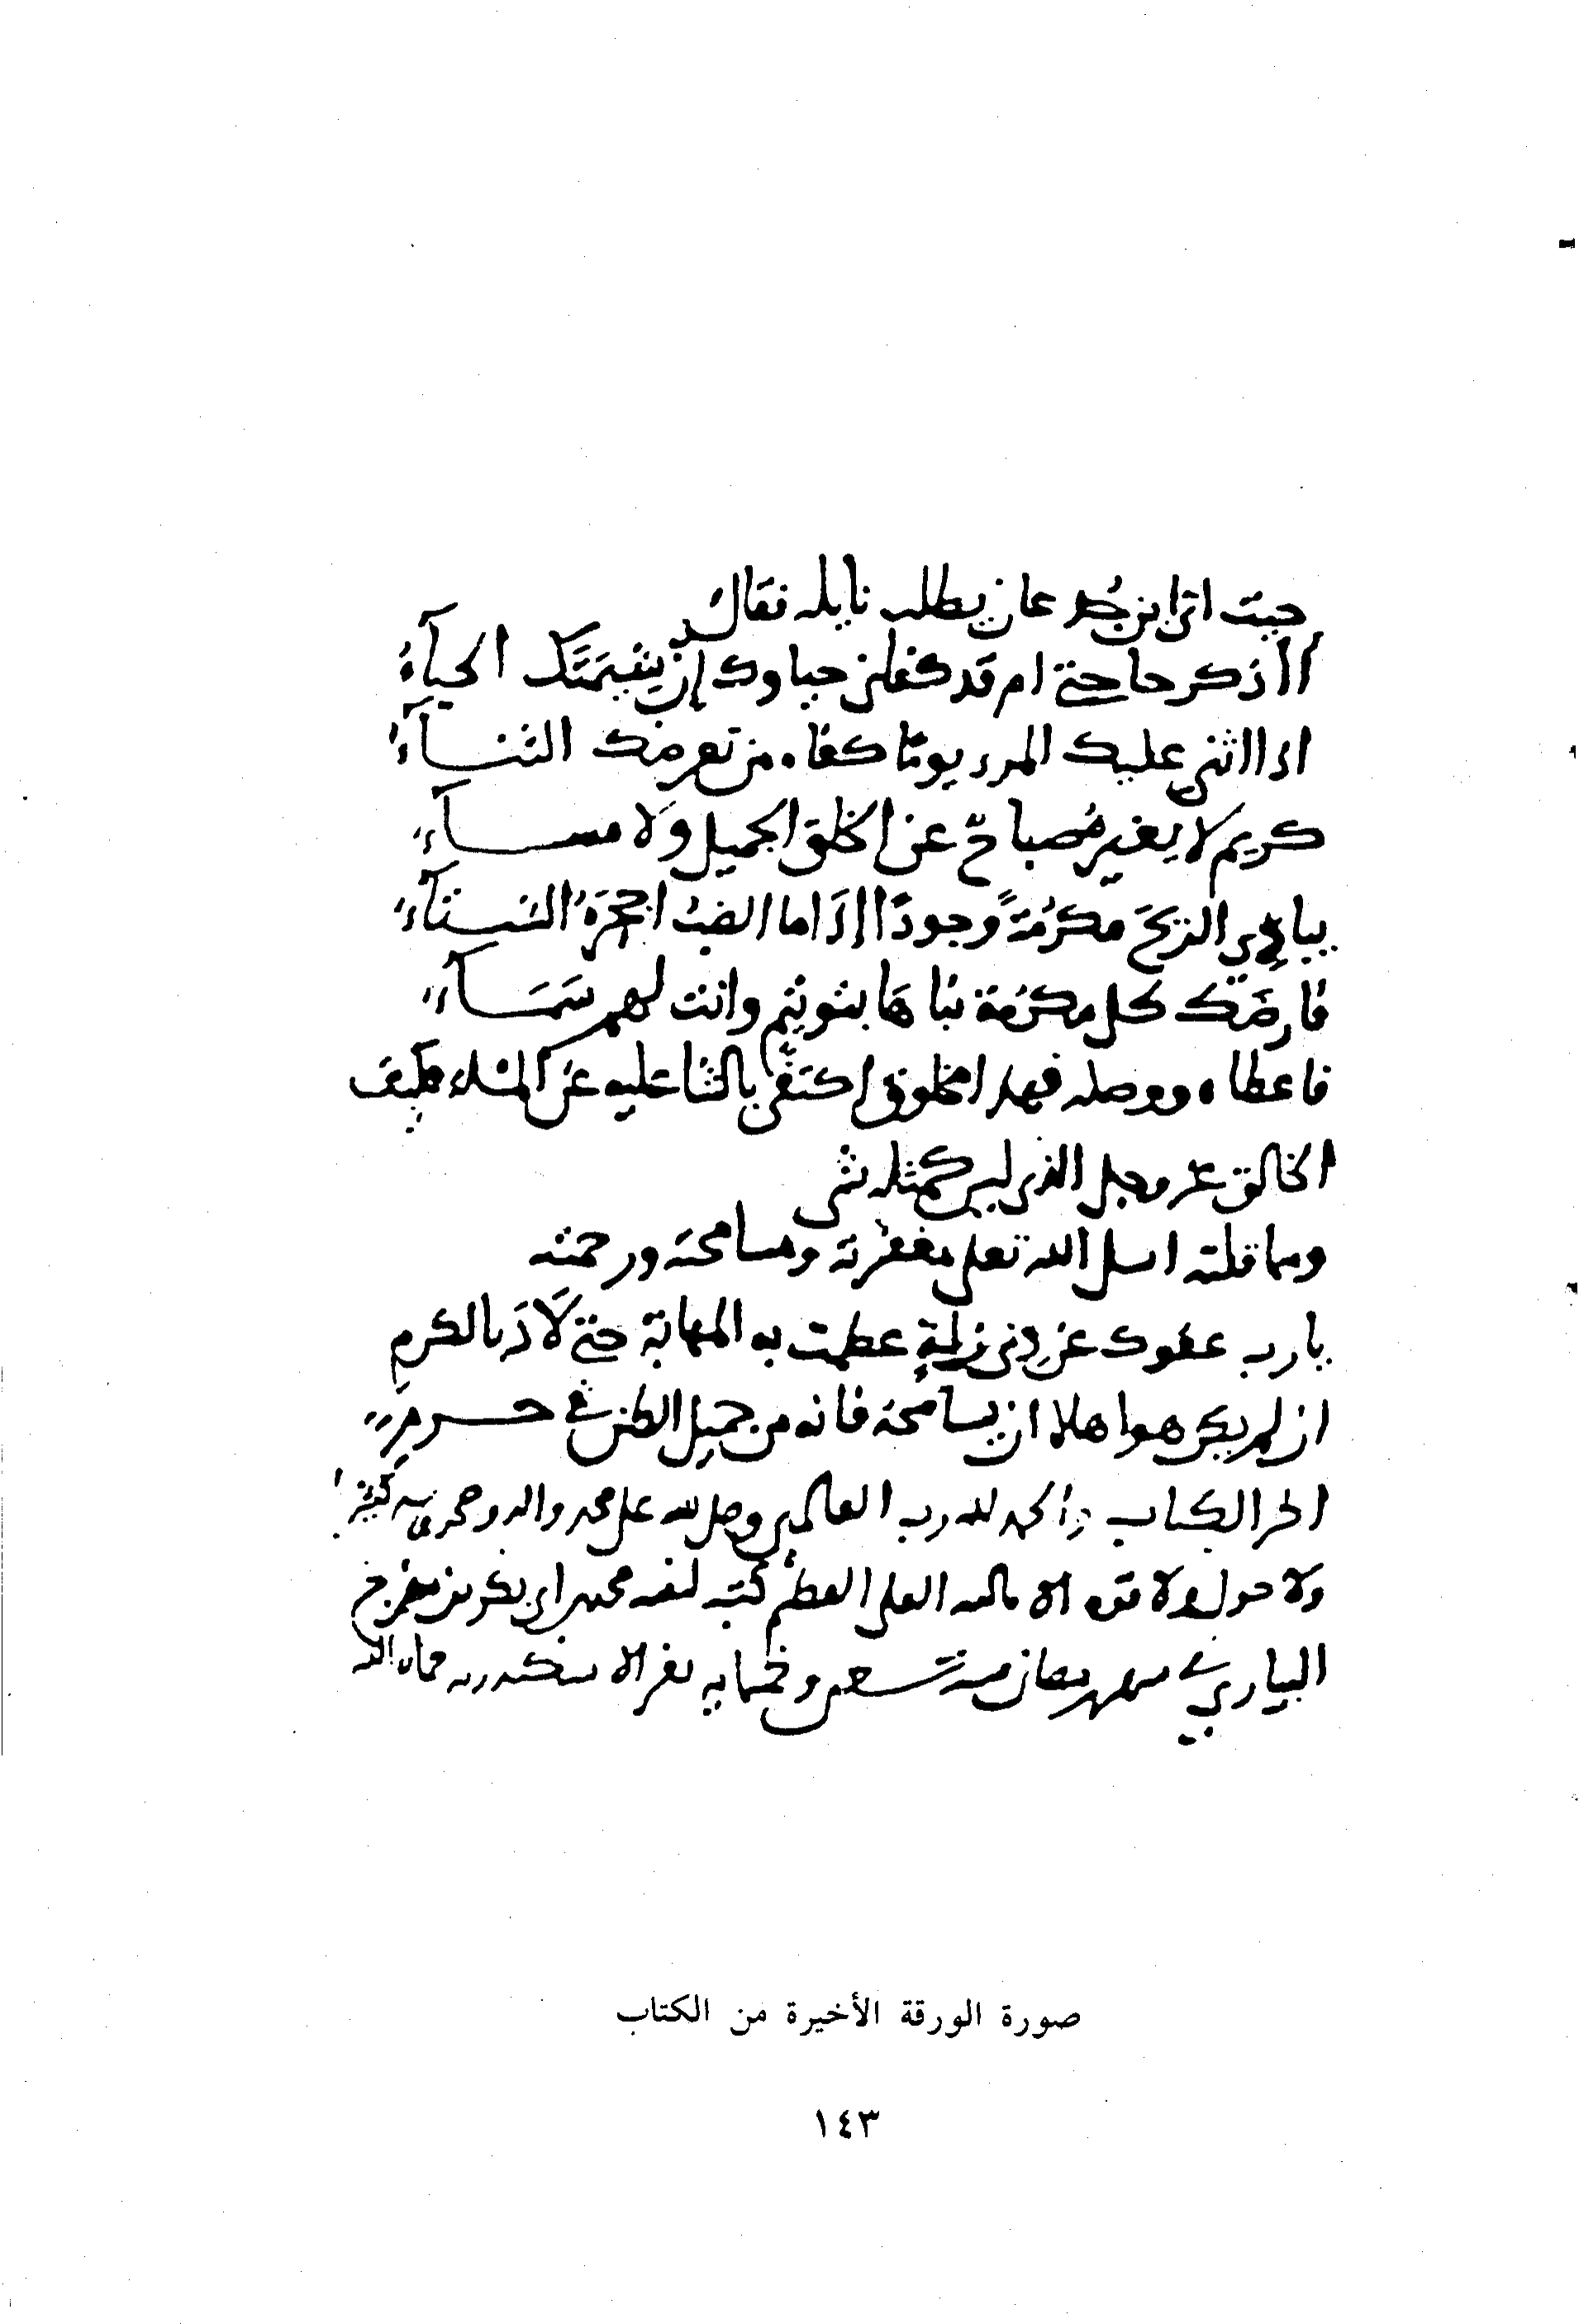 حيث اتى ابن جدعان يطلب نايله فقال
أأذكر حاجتي ام قد كفاني حياوك إن شيمتك الحيآءُ
اذا اثنى عليك المرء يومًا كفاه من تعرضك الثنــاءُ
كريم لا يغيره صباحٌ عن الخلق الجميل ولا مســاءُ
يباري الريحَ مكرُمةً وجودًا إذا ما الضبُ احجرَهُ الشتآءُ
فارضك كل مكرُمة بناها بنو تيم وانت لهم سَمَــاءُ
فاعطاه ووصله فهذا مخلوق اكتفى بالثنا عليه عن المسلة فكيف
الخالق عز وجل الذي ليس كمثله شي
ومما قلته اسل الله تعلى مغفرته ومسامحته ورحمته
يا رب عفوك عن ذي زلةٍ عظمت به المهابة حتى لَاذَ بالكرمِ
ان لم يكن هو اهلا ان يسامحه فانه من جميل الظن في حــرمِ
اخر الكتاب والحمد لله رب العالمين وصلى الله على محمد واله وصحبه كثيرا
ولا حول ولا قوه الا بالله العلي العظيم كتبه لنفسه محمد ابن بكر بن مفرج
البياري في شهر رمضان سنة تسعين وخمسمايه بثغر الاسكندريه حماه الله
صورة الورقة الأخيرة من الكتاب
١٤٣